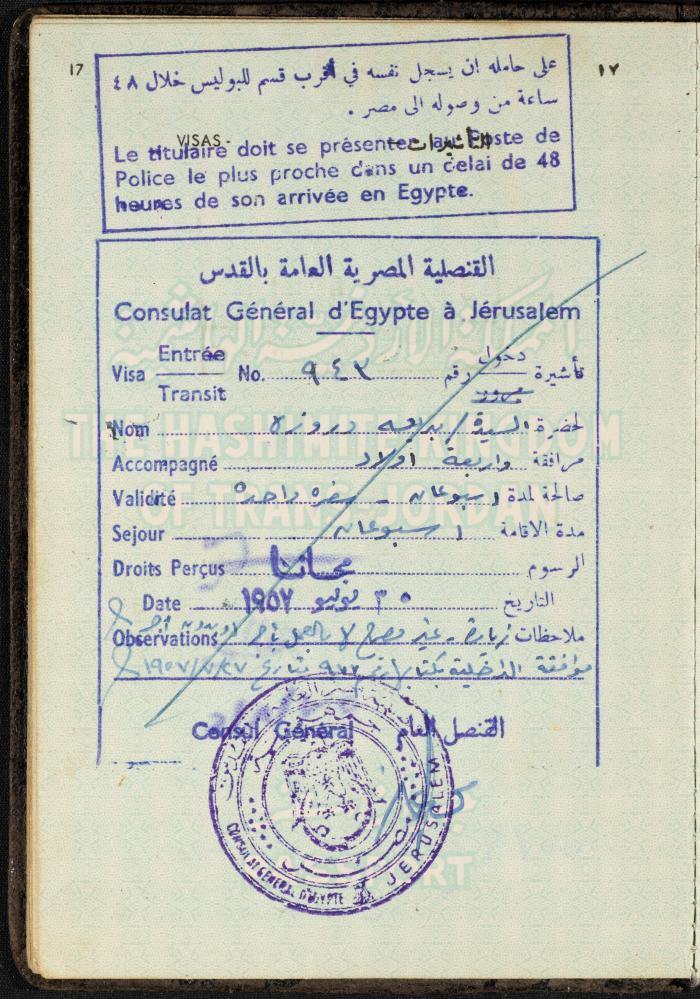 17 ١٧
على حامله ان يسجل نفسه في أقرب قسم للبوليس خلال ٤٨
ساعة من وصوله الى مصر .
VISAS - التأشيرات
Le titulaire doit se présenter au Poste de
Police le plus proche dans un delai de 48
heures de son arrivée en Egypte.
القنصلية المصرية العامة بالقدس
Consulat Général d'Egypte à Jérusalem
Visa Entrée Transit No. ٩٤٣ تأشيرة دخول مرور رقم
Nom السيدة / بديعه دروزه لحضرة
Accompagné واربعة اولاد مرافقة
Validité اسبوعان - سفره واحده صالحة لمدة
Sejour اسبوعان مدة الاقامة
Droits Perçus مجانا الرسوم
Date ٣٠ يونيو ١٩٥٧ التاريخ
Observations زيارة - غير مصرح لا بالعمل ملاحظات
موافقة الداخلية بكتاب رقم بتاريخ
Consul Général القنصل العام
CONSULAT GENERAL D'EGYPTE JERUSALEM
THE HASHIMITE KINGDOM
OF TRANS-JORDAN
PASSPORT